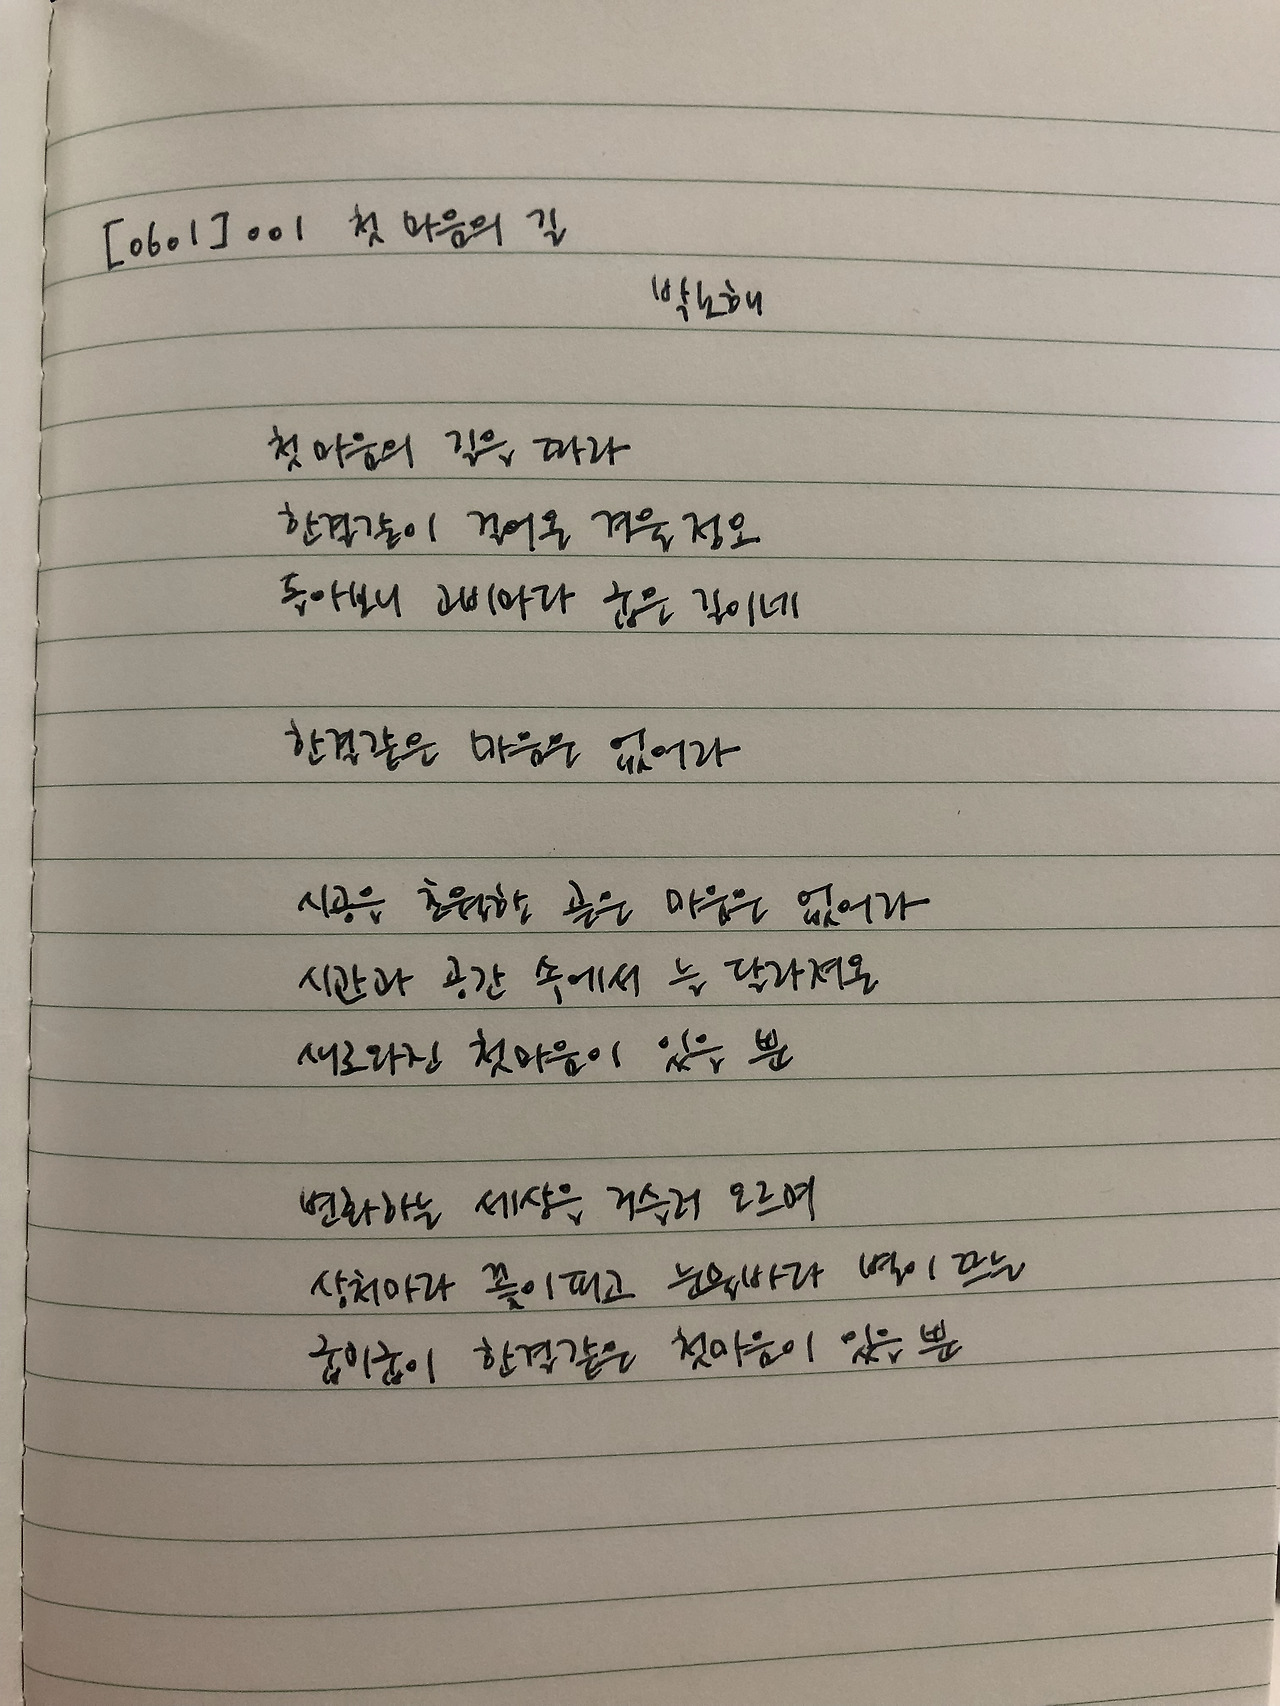 [0601] 001 첫 마음의 길
박노해
첫 마음의 길을 따라
한결같이 걸어온 겨울 정오
돌아보니 고비마다 굽은 길이네
한결같은 마음은 없어라
시공을 초월한 곧은 마음은 없어라
시간과 공간 속에서 늘 달라져온
새로와진 첫마음이 있을 뿐
변화하는 세상을 거슬러 오르며
상처마다 꽃이 피고 눈물마다 별이 뜨는
굽이굽이 한결같은 첫마음이 있을 뿐